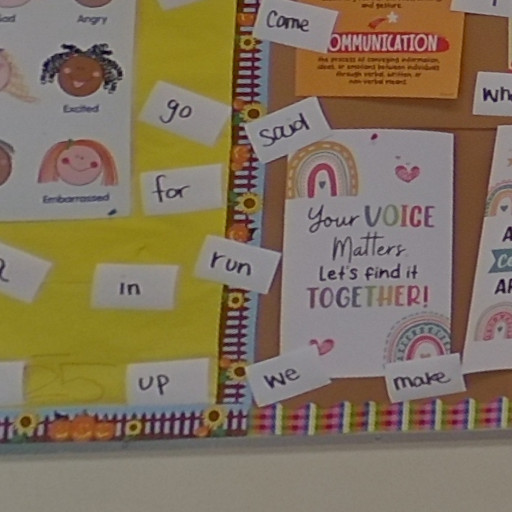 Sad
Angry
Excited
Embarrassed
go
for
in
run
up
come
said
we
make
and gesture.
COMMUNICATION
the process of conveying information,
ideas, or emotions between individuals
through verbal, written, or
non-verbal means
Your VOICE
Matters.
Let's find it
TOGETHER!